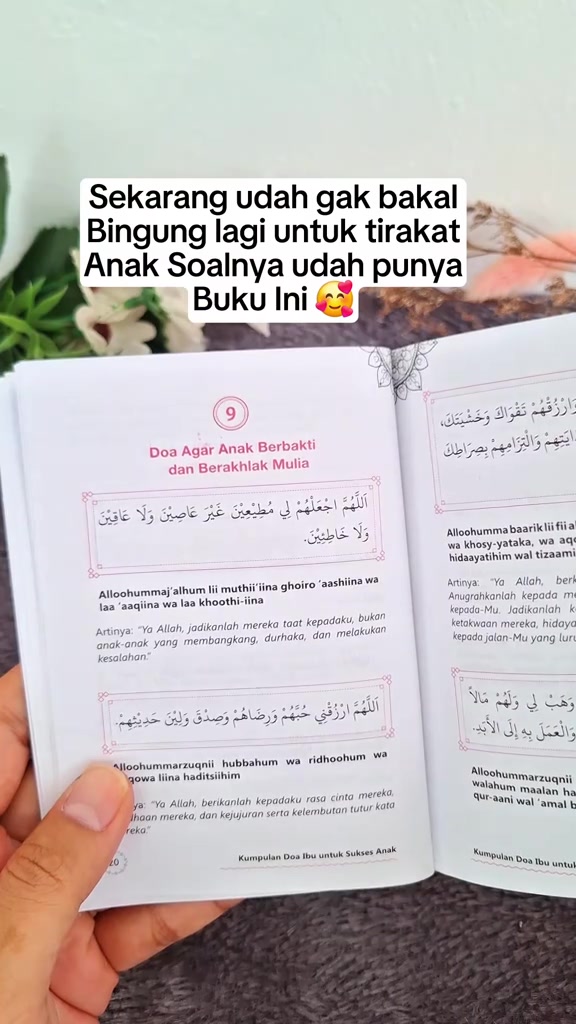 Sekarang udah gak bakal
Bingung lagi untuk tirakat
Anak Soalnya udah punya
Buku Ini 🥰
9
Doa Agar Anak Berbakti
dan Berakhlak Mulia
اَللّٰهُمَّ اجْعَلْهُمْ لِي مُطِيْعِيْنَ غَيْرَ عَاصِيْنَ وَلَا عَاقِيْنَ
وَلَا خَاطِئِيْنَ.
Alloohummaj'alhum lii muthii'iina ghoiro 'aashiina wa
laa 'aaqiina wa laa khoothi-iina
Artinya: "Ya Allah, jadikanlah mereka taat kepadaku, bukan
anak-anak yang membangkang, durhaka, dan melakukan
kesalahan."
اَللّٰهُمَّ ارْزُقْنِي حُبَّهُمْ وَرِضَاهُمْ وَصِدْقَ وَلِيْنَ حَدِيْثِهِمْ.
Alloohummarzuqnii hubbahum wa ridhoohum wa
qowa liina haditsiihim
ya: "Ya Allah, berikanlah kepadaku rasa cinta mereka,
dhaan mereka, dan kejujuran serta kelembutan tutur kata
reka."
20
Kumpulan Doa Ibu untuk Sukses Anak
وَارْزُقْهُمْ تَقْوَاكَ وَخَشْيَتَكَ،
دَايَتِهِمْ وَالْتِزَامِهِمْ بِصِرَاطِكَ
Alloohumma baarik lii fii a
wa khosy-yataka, wa aqo
hidaayatihim wal tizaami
Artinya: "Ya Allah, berk
Anugrahkanlah kepada me
kepada-Mu. Jadikanlah k
ketakwaan mereka, hidaya
kepada jalan-Mu yang luru
وَهَبْ لِي وَلَهُمْ مَالًا
وَالْعَمَلَ بِهِ إِلَى الْأَبَدِ.
Alloohummarzuqnii
walahum maalan ha
qur-aani wal 'amal b
Kumpulan Doa Ibu untuk